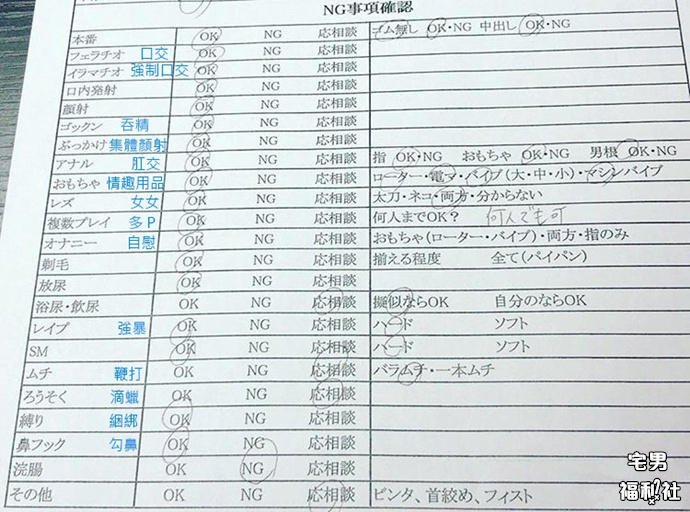 NG事項確認
本番 OK NG 応相談 ゴム無し OK・NG 中出し OK・NG
フェラチオ 口交 OK NG 応相談
イラマチオ 強制口交 OK NG 応相談
口内発射 OK NG 応相談
顔射 OK NG 応相談
ゴックン 吞精 OK NG 応相談
ぶっかけ 集體顏射 OK NG 応相談
アナル 肛交 OK NG 応相談 指 OK・NG おもちゃ OK・NG 男根 OK・NG
おもちゃ 情趣用品 OK NG 応相談 ローター・電マ・バイブ(大・中・小)・マシンバイブ
レズ 女女 OK NG 応相談 太刀・ネコ・両方・分からない
複数プレイ 多P OK NG 応相談 何人までOK? 何人でも可
オナニー 自慰 OK NG 応相談 おもちゃ(ローター・バイブ)・両方・指のみ
剃毛 OK NG 応相談 揃える程度 全て(パイパン)
放尿 OK NG 応相談
浴尿・飲尿 OK NG 応相談 擬似ならOK 自分のならOK
レイプ 強暴 OK NG 応相談 ハード ソフト
SM OK NG 応相談 ハード ソフト
ムチ 鞭打 OK NG 応相談 バラムチ・一本ムチ
ろうそく 滴蠟 OK NG 応相談
縛り 綑綁 OK NG 応相談
鼻フック 勾鼻 OK NG 応相談
浣腸 OK NG 応相談
その他 OK NG 応相談 ビンタ、首絞め、フィスト
宅男
福利社